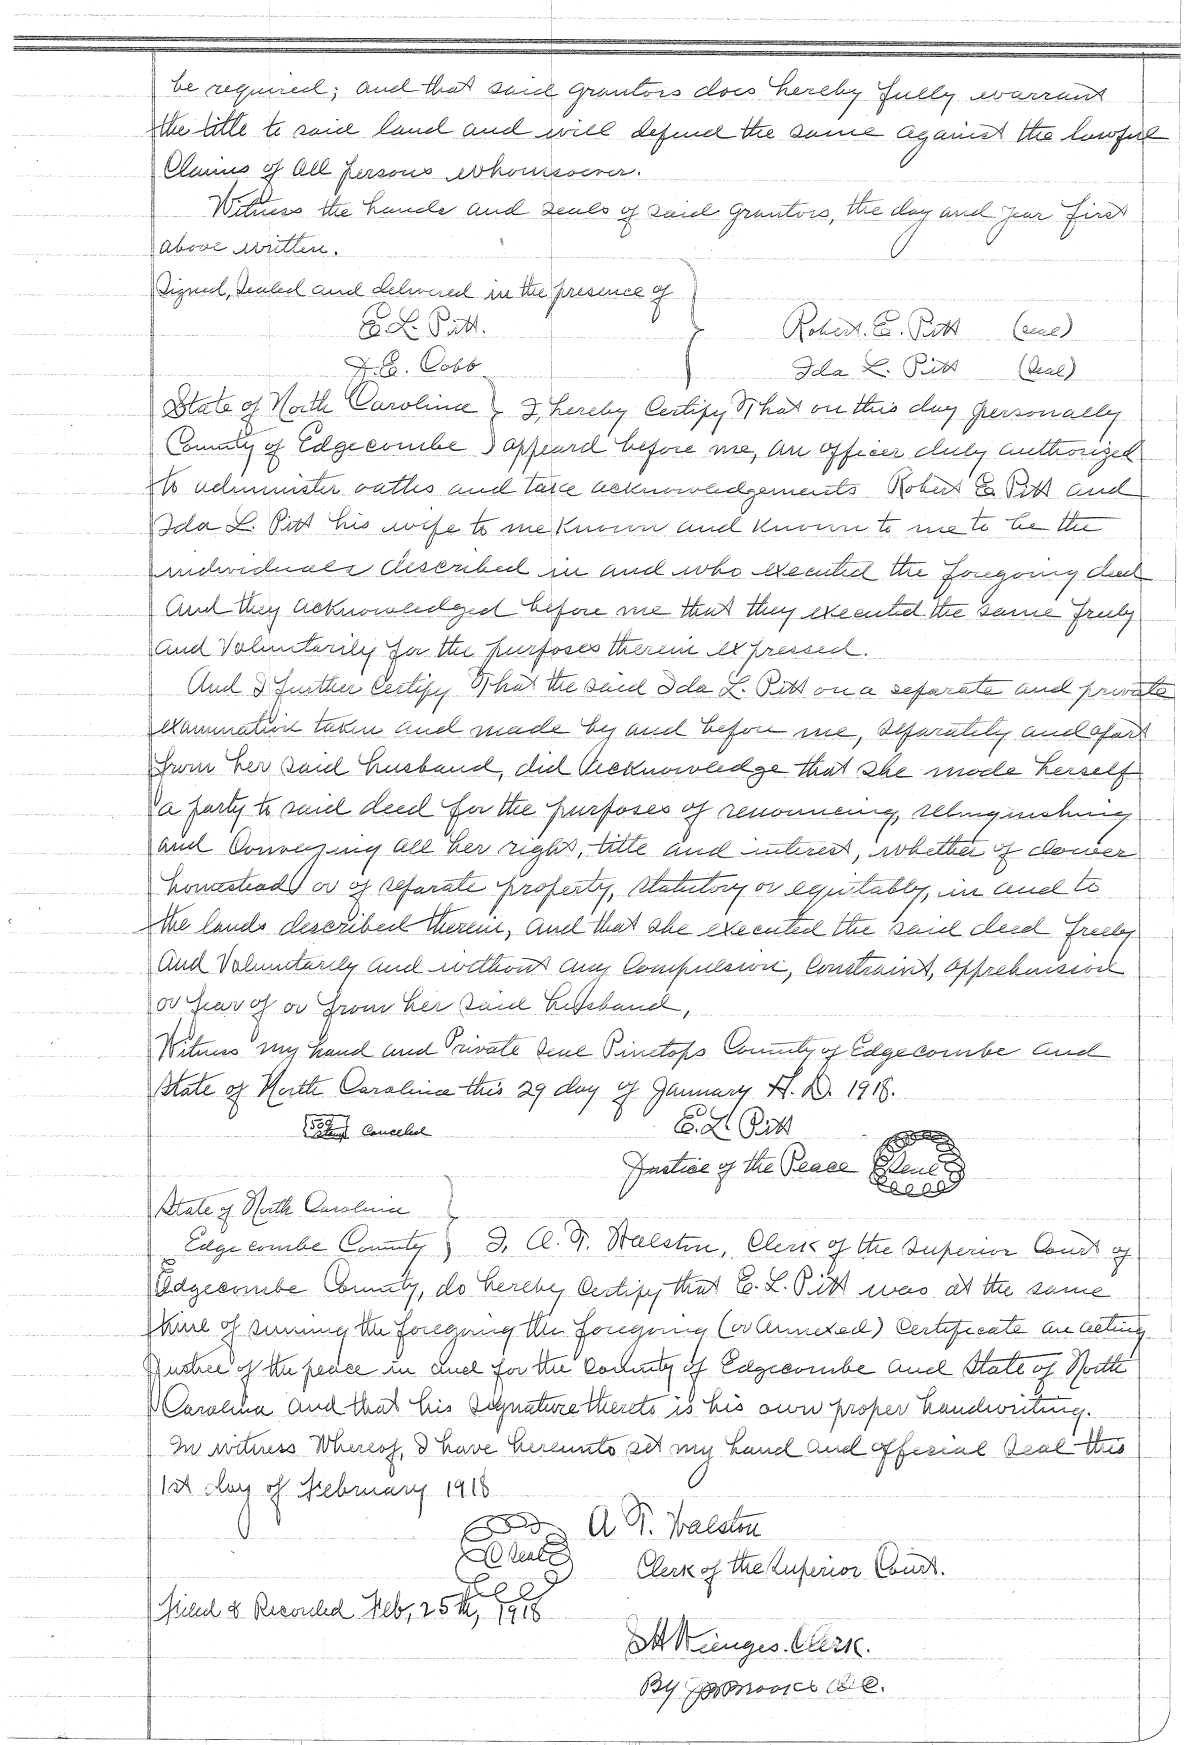 be required; and that said grantors does hereby fully warrant
the title to said land and will defend the same against the lawful
Claims of all persons whomsoever.
Witness the hands and seals of said grantors, the day and year first
above written.
Signed, Sealed and delivered in the presence of
E. L. Pitt. Robert. E. Pitt (seal)
J. E. Cobb Ida L. Pitt (Seal)
State of North Carolina } I, hereby Certify That on this day personally
County of Edgecombe } appeard before me, an officer duly authorized
to administer oaths and take acknowledgements Robert E Pitt and
Ida L. Pitt his wife to me Known and Known to me to be the
individuals described in and who executed the foregoing deed
And they acknowledged before me that they executed the same freely
and Voluntarily for the purposes therein expressed.
And I further Certify That the said Ida L. Pitt on a separate and private
examination taken and made by and before me, separately and apart
from her said husband, did acknowledge that she made herself
a party to said deed for the purposes of renouncing, relinquishing
and Conveying all her right, title and interest, whether of dower
homestead or of separate property, statutory or equitably, in and to
the lands described therein, and that she executed the said deed freely
and Voluntarily and without any Compulsion, Constraint, apprehension
or fear of or from her said husband,
Witness my hand and Private seal Pinetops County of Edgecombe and
State of North Carolina this 29 day of January A. D. 1918.
50¢ Stamp Canceled E. L. Pitt
Justice of the Peace Seal
State of North Carolina
Edgecombe County } I, A. T. Walston, Clerk of the Superior Court of
Edgecombe County, do hereby Certify that E. L. Pitt was at the same
time of the foregoing the foregoing (or Annexed) Certificate an acting
Justice of the peace in and for the County of Edgecombe and State of North
Carolina and that his signature thereto is his own proper handwriting.
In witness Whereof, I have hereunto set my hand and official Seal this
1st day of February 1918
A T. Walston
Seal Clerk of the Superior Court.
Filed & Recorded Feb, 25th, 1918
Clerk.
By D.C.